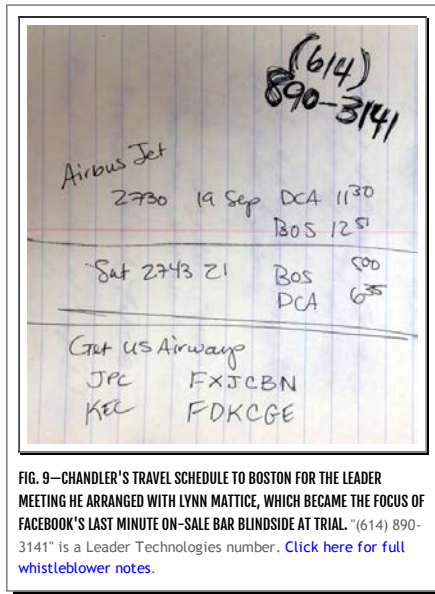 (614)
890-3141
Airbus Jet
2730 19 Sep DCA 11 30
BOS 12 51
Sat 2743 21 BOS 500
DCA 6 35
Get US Airways
JPC FXJCBN
KEC FDKCGE
FIG. 9—CHANDLER'S TRAVEL SCHEDULE TO BOSTON FOR THE LEADER
MEETING HE ARRANGED WITH LYNN MATTICE, WHICH BECAME THE FOCUS OF
FACEBOOK'S LAST MINUTE ON-SALE BAR BLINDSIDE AT TRIAL. "(614) 890-
3141" is a Leader Technologies number. Click here for full
whistleblower notes.